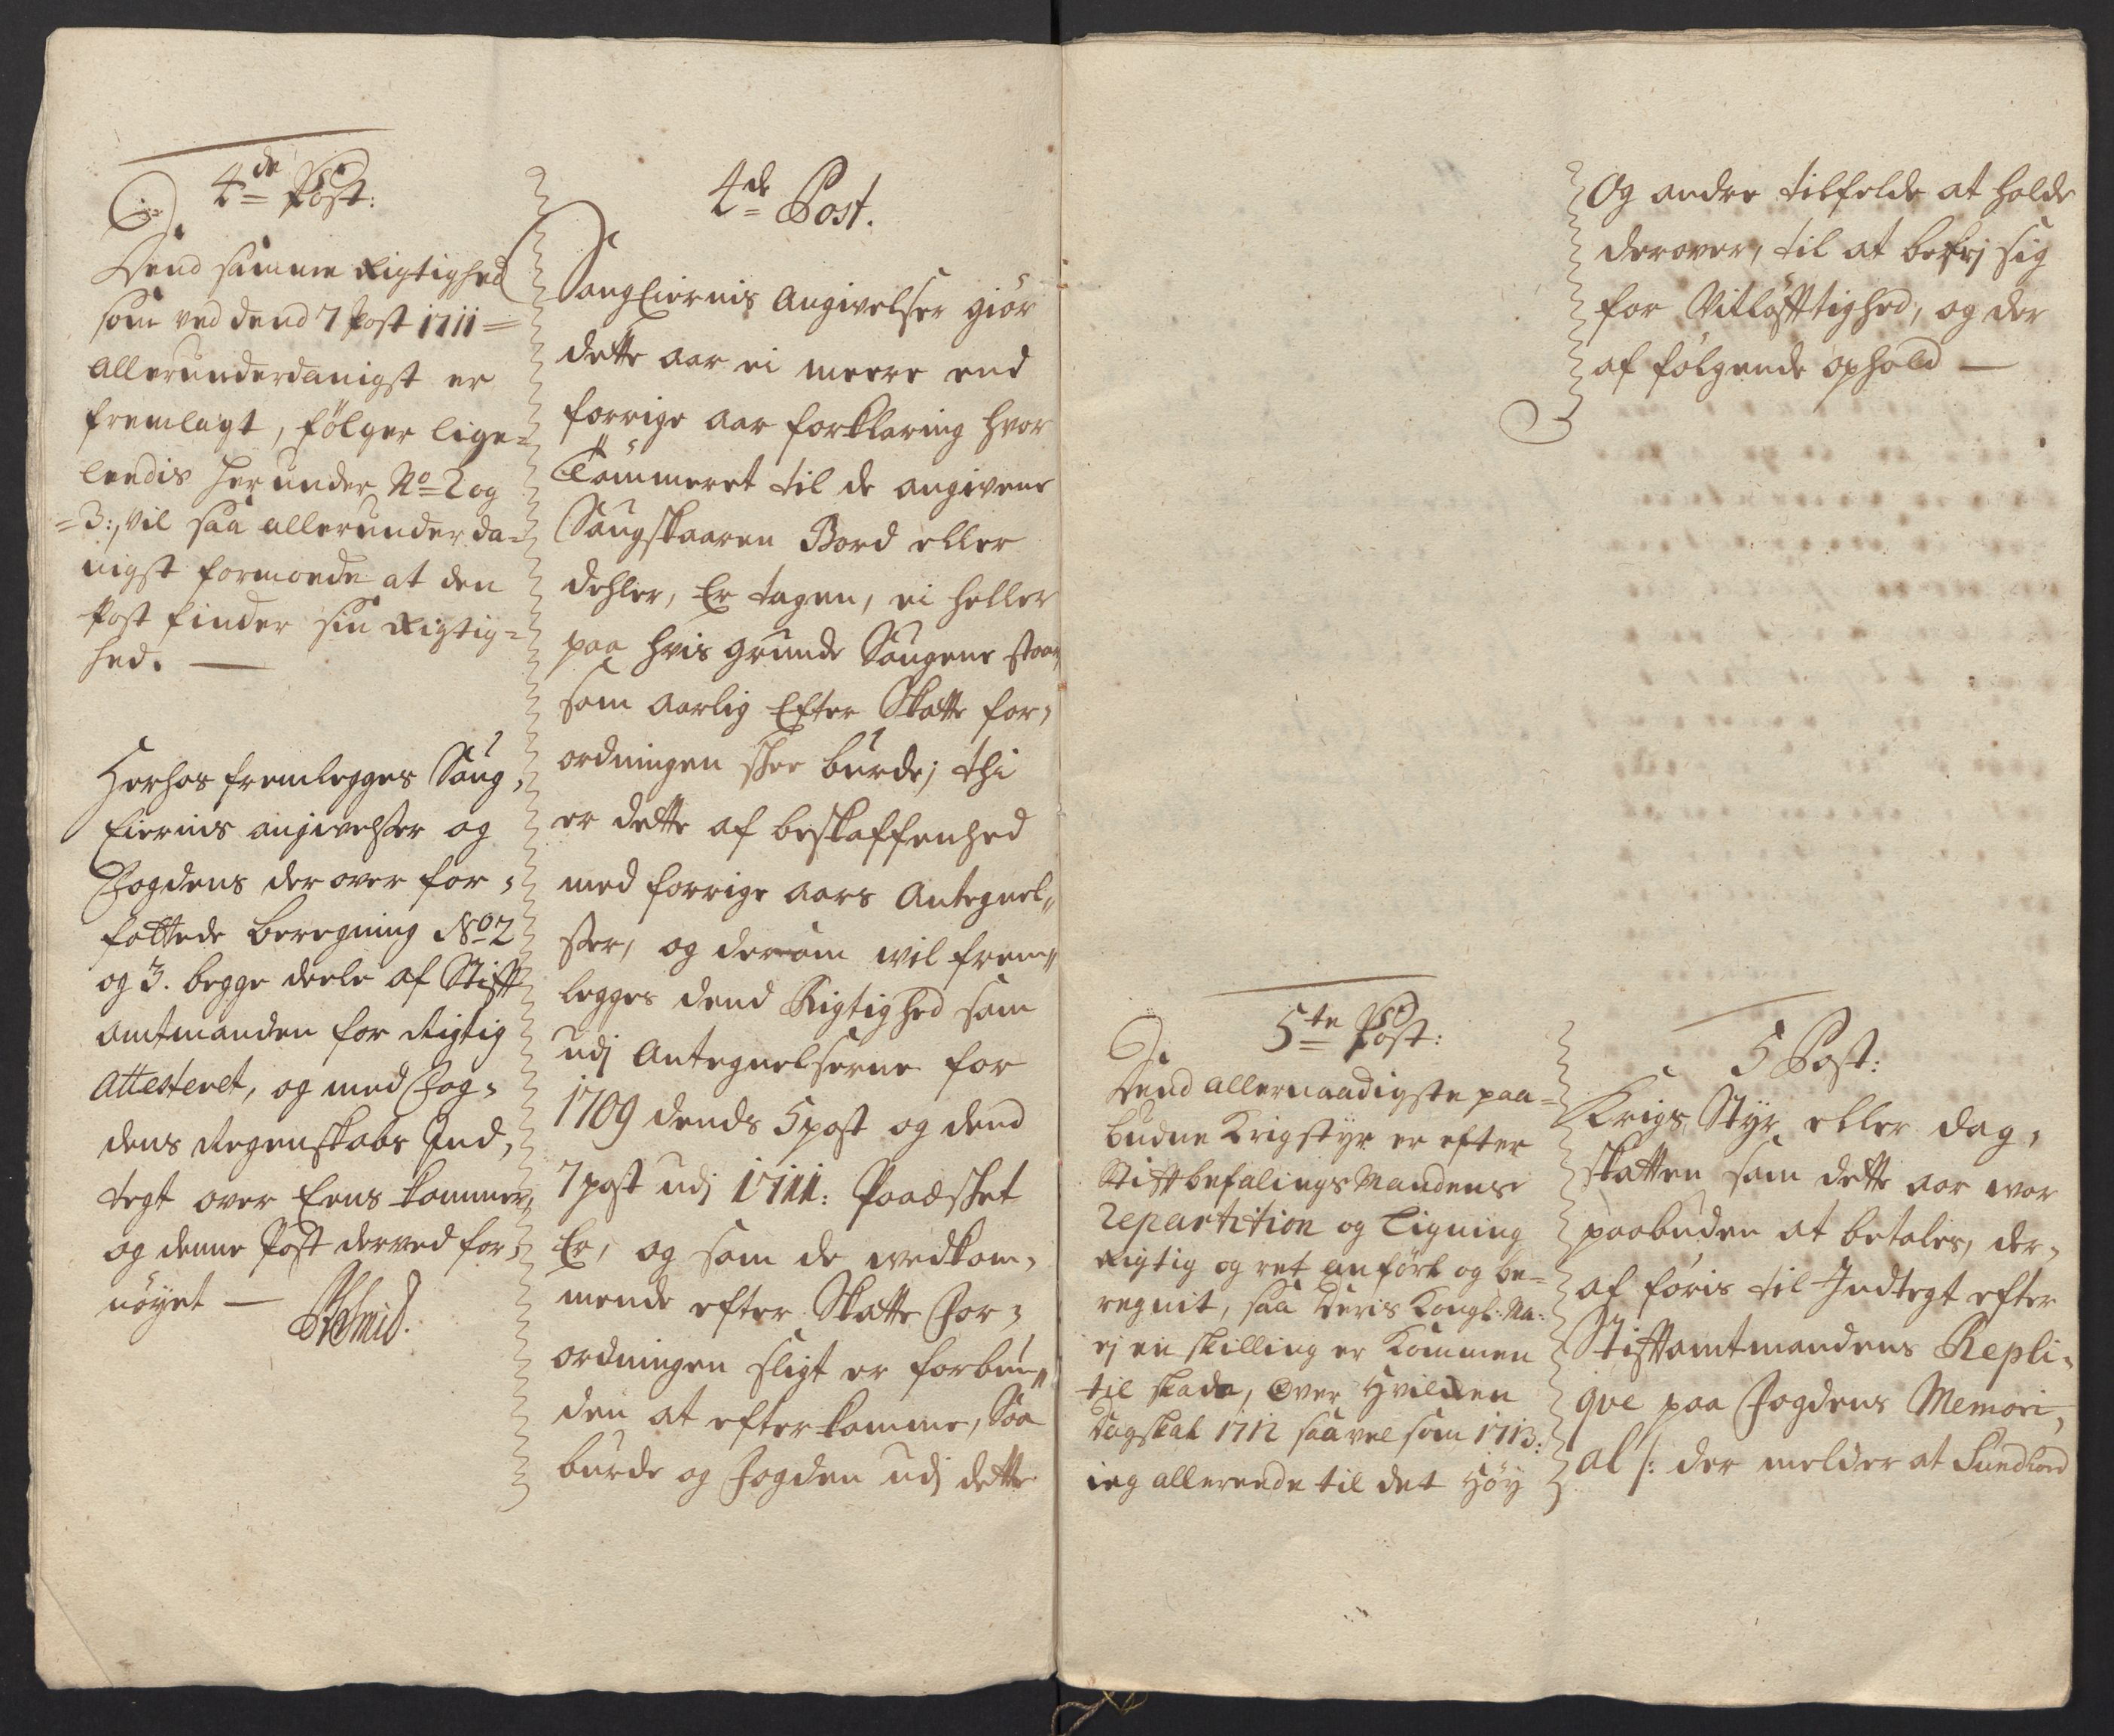 4de Post:
Dend samme Rigtighed
som ved dend 7 Post 1711=
allerunderdanigst er
fremlagt, fölger lige=
ledis her under No 2 og
=3:, vil saa allerunderda=
nigst formoede at den
Post finder sin Rigtig=
hed. —
Herhos fremlegges Saug,
Eiernis angivelser og
Fogdens der over for,
fattede beregning No 2
og 3. begge deele af Stifft
amtmanden for Rigtig
Attesteret, og med Fog,
dens Regenskabs Ind,
tegt over Eens kommer,
og denne Post derved for,
nöyet —
4de Post.
SaugEiernis Angivelser giör
dette aar ei meere end
forrige aar forklaring hvor
Tömmeret til de angivene
Saugskaaren Bord eller
dehler, Er tagen, ei heller
paa hvis grunde Saugene staar,
som Aarlig Efter Skatte for,
ordningen skee burde; thi
er dette af beskaffenhed
med forrige aars Antegnel,,
ser, og derom wil frem,,
legges dend Rigtighed som
udj Antegnelserne for
1709 dends 5 post og dend
7 post udj 1711: Paadsket
Er, og som de wedkom,
mende efter Skatte For,
ordningen sligt er forbun,,
den at efterkomme, Saa
burde og Fogden udj dette
Og andre tilfelde at holde
derover, til at befrj sig
for Vitlöfftighed, og der
af følgende ophold —
5te Post:
Dend allernaadigste paa=
budne Krigstyr er efter
StiftbefalingsMandens
repartition og Ligning
Rigtig og ret anfört og be=
regnit, saa Deris Kongl: Ma:
ej en skilling er kommen
til skade, Over Hvilken
Dagskat 1712 saa vel som 1713:
ieg allerende til det Höy
5 Post:
Krigs Styr eller dag,
skatten som dette aar war
paabuden at betales, der,
af föris til Indtegt efter
Stifftamtmandens Repli,
qve paa Fogdens Memori,
al /: der melder at Sundhord